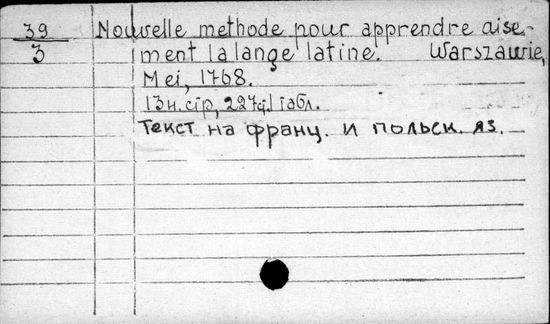 39 Nouvelle methode pour apprendre aise-
3 ment la lange latine. Warszawie,
Mei, 1768.
13 н. стр, 227 с, 1 табл.
Текст на франц. и польск. яз.